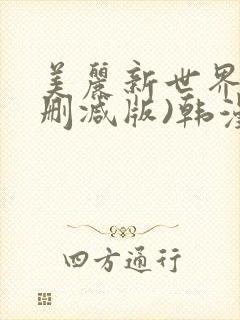 美麗新世界
删减版)韩漫
四方通行